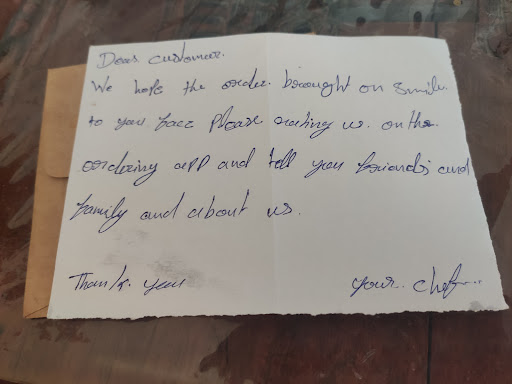 Dear customer.
We hope the order brought on smile
to you face please rating us. on the
ordering app and tell you friends and
family and about us.
Thank you
your chef